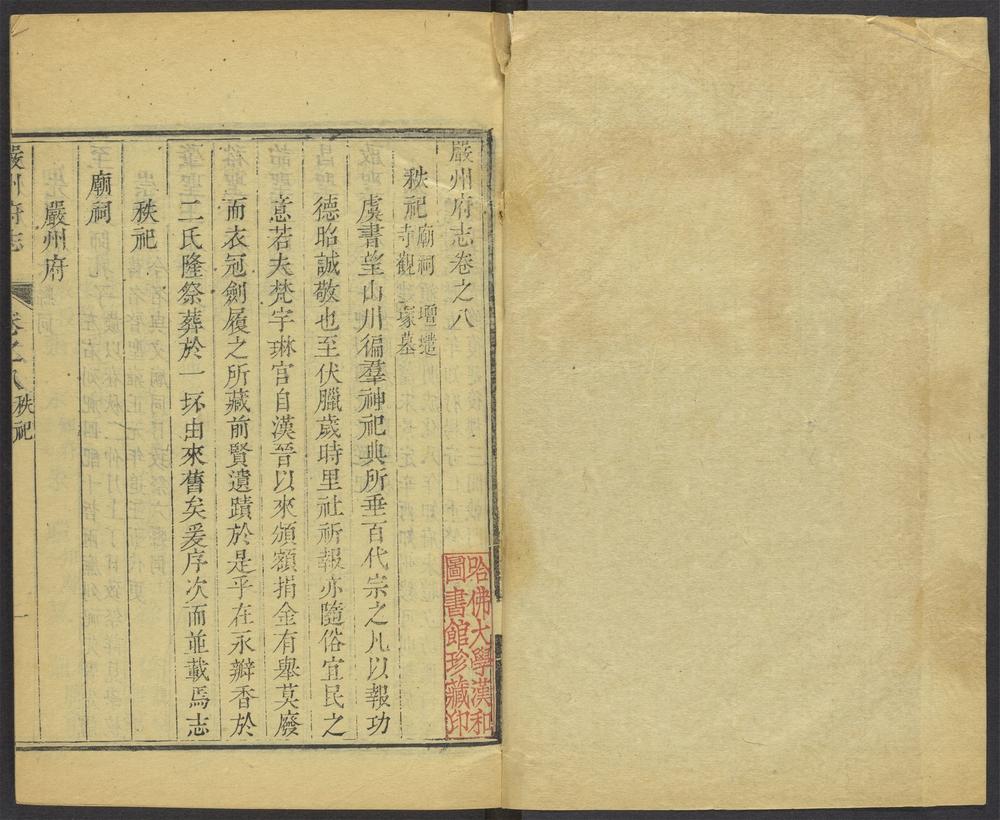 嚴州府志卷之八
秩祀 廟祠 壇壝 寺觀 塚墓
虞書望山川徧羣神祀典所垂百代宗之凡以報功
德昭誠敬也至伏臘歲時里社祈報亦隨俗宜民之
意若夫梵宇琳宮自漢晉以來頒額捐金有舉莫廢
而衣冠劍履之所藏前賢遺蹟於是乎在永瓣香於
二氏隆祭葬於一抔由來舊矣爰序次而並載焉志
秩祀
廟祠
嚴州府
嚴州府志 卷之八 秩祀 一
哈佛大學漢和
圖書館珍藏印